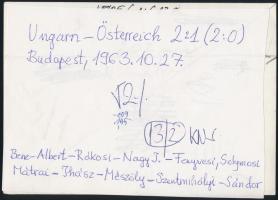 Ungarn - Österreich 2:1 (2:0)
Budapest, 1963.10.27.
12.-/.
132
Bene - Albert - Rákosi - Nagy I. - Fenyvesi, Solymosi
Mátrai - Ihász - Mészöly - Szentmihályi - Sándor